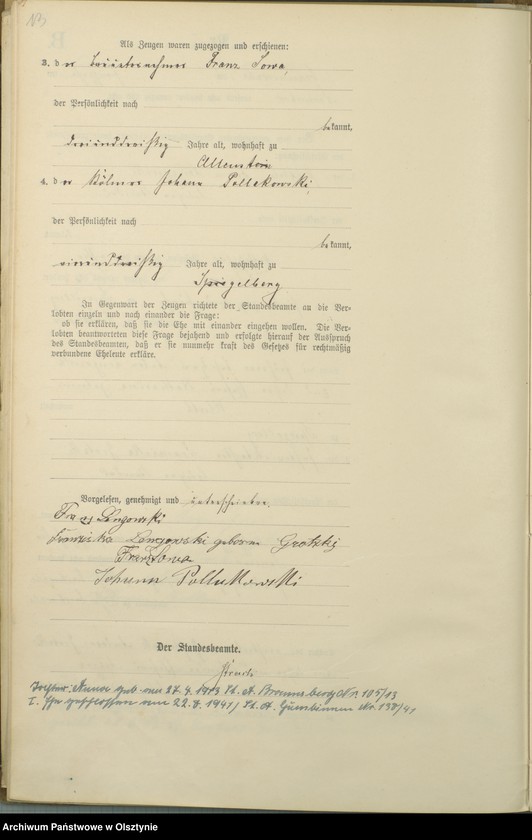 Als Zeugen waren zugezogen und erschienen:
3. der Bauunternehmer Franz Sowa,
der Persönlichkeit nach
bekannt,
dreiunddreißig Jahre alt, wohnhaft zu
Allenstein
4. der Kölmer Johann Pollakowski,
der Persönlichkeit nach
bekannt,
einunddreißig Jahre alt, wohnhaft zu
Spiegelberg
In Gegenwart der Zeugen richtete der Standesbeamte an die Ver-
lobten einzeln und nach einander die Frage:
ob sie erklären, daß sie die Ehe mit einander eingehen wollen. Die Ver-
lobten beantworteten diese Frage bejahend und erfolgte hierauf der Ausspruch
des Standesbeamten, daß er sie nunmehr kraft des Gesetzes für rechtmäßig
verbundene Eheleute erkläre.
Vorgelesen, genehmigt und unterschrieben.
Franz Langowski
Franziska Langowski geboren Grotzki
Franz Sowa
Johann Pollakowski
Der Standesbeamte.
Tochter: Anna geb. am 27. 4. 1913 St. A. Braunsberg Nr. 105/13
I. Ehe geschlossen am 22. 8. 1941 / St. A. Gumbinnen Nr. 138/41
Archiwum Państwowe w Olsztynie